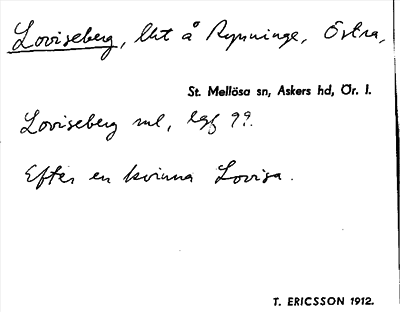 Loviseberg, lht å Rynninge, Östra,
St. Mellösa sn, Askers hd, Ör. l.
Loviseberg
Efter en kvinna Lovisa.
T. ERICSSON 1912.